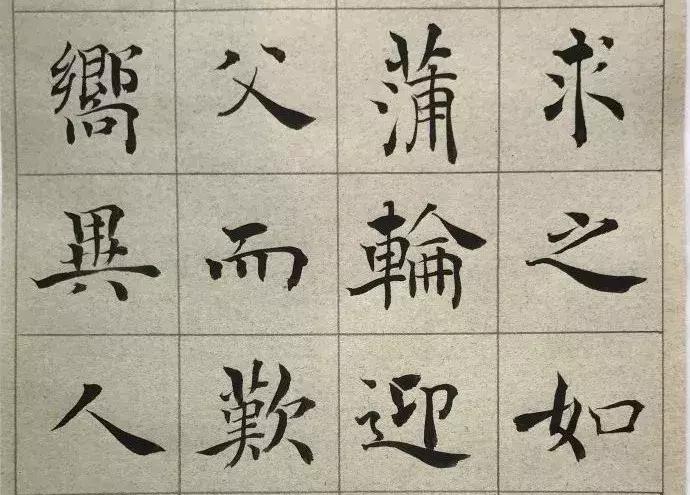 求之如
蒲輪迎
父而歎
嚮異人